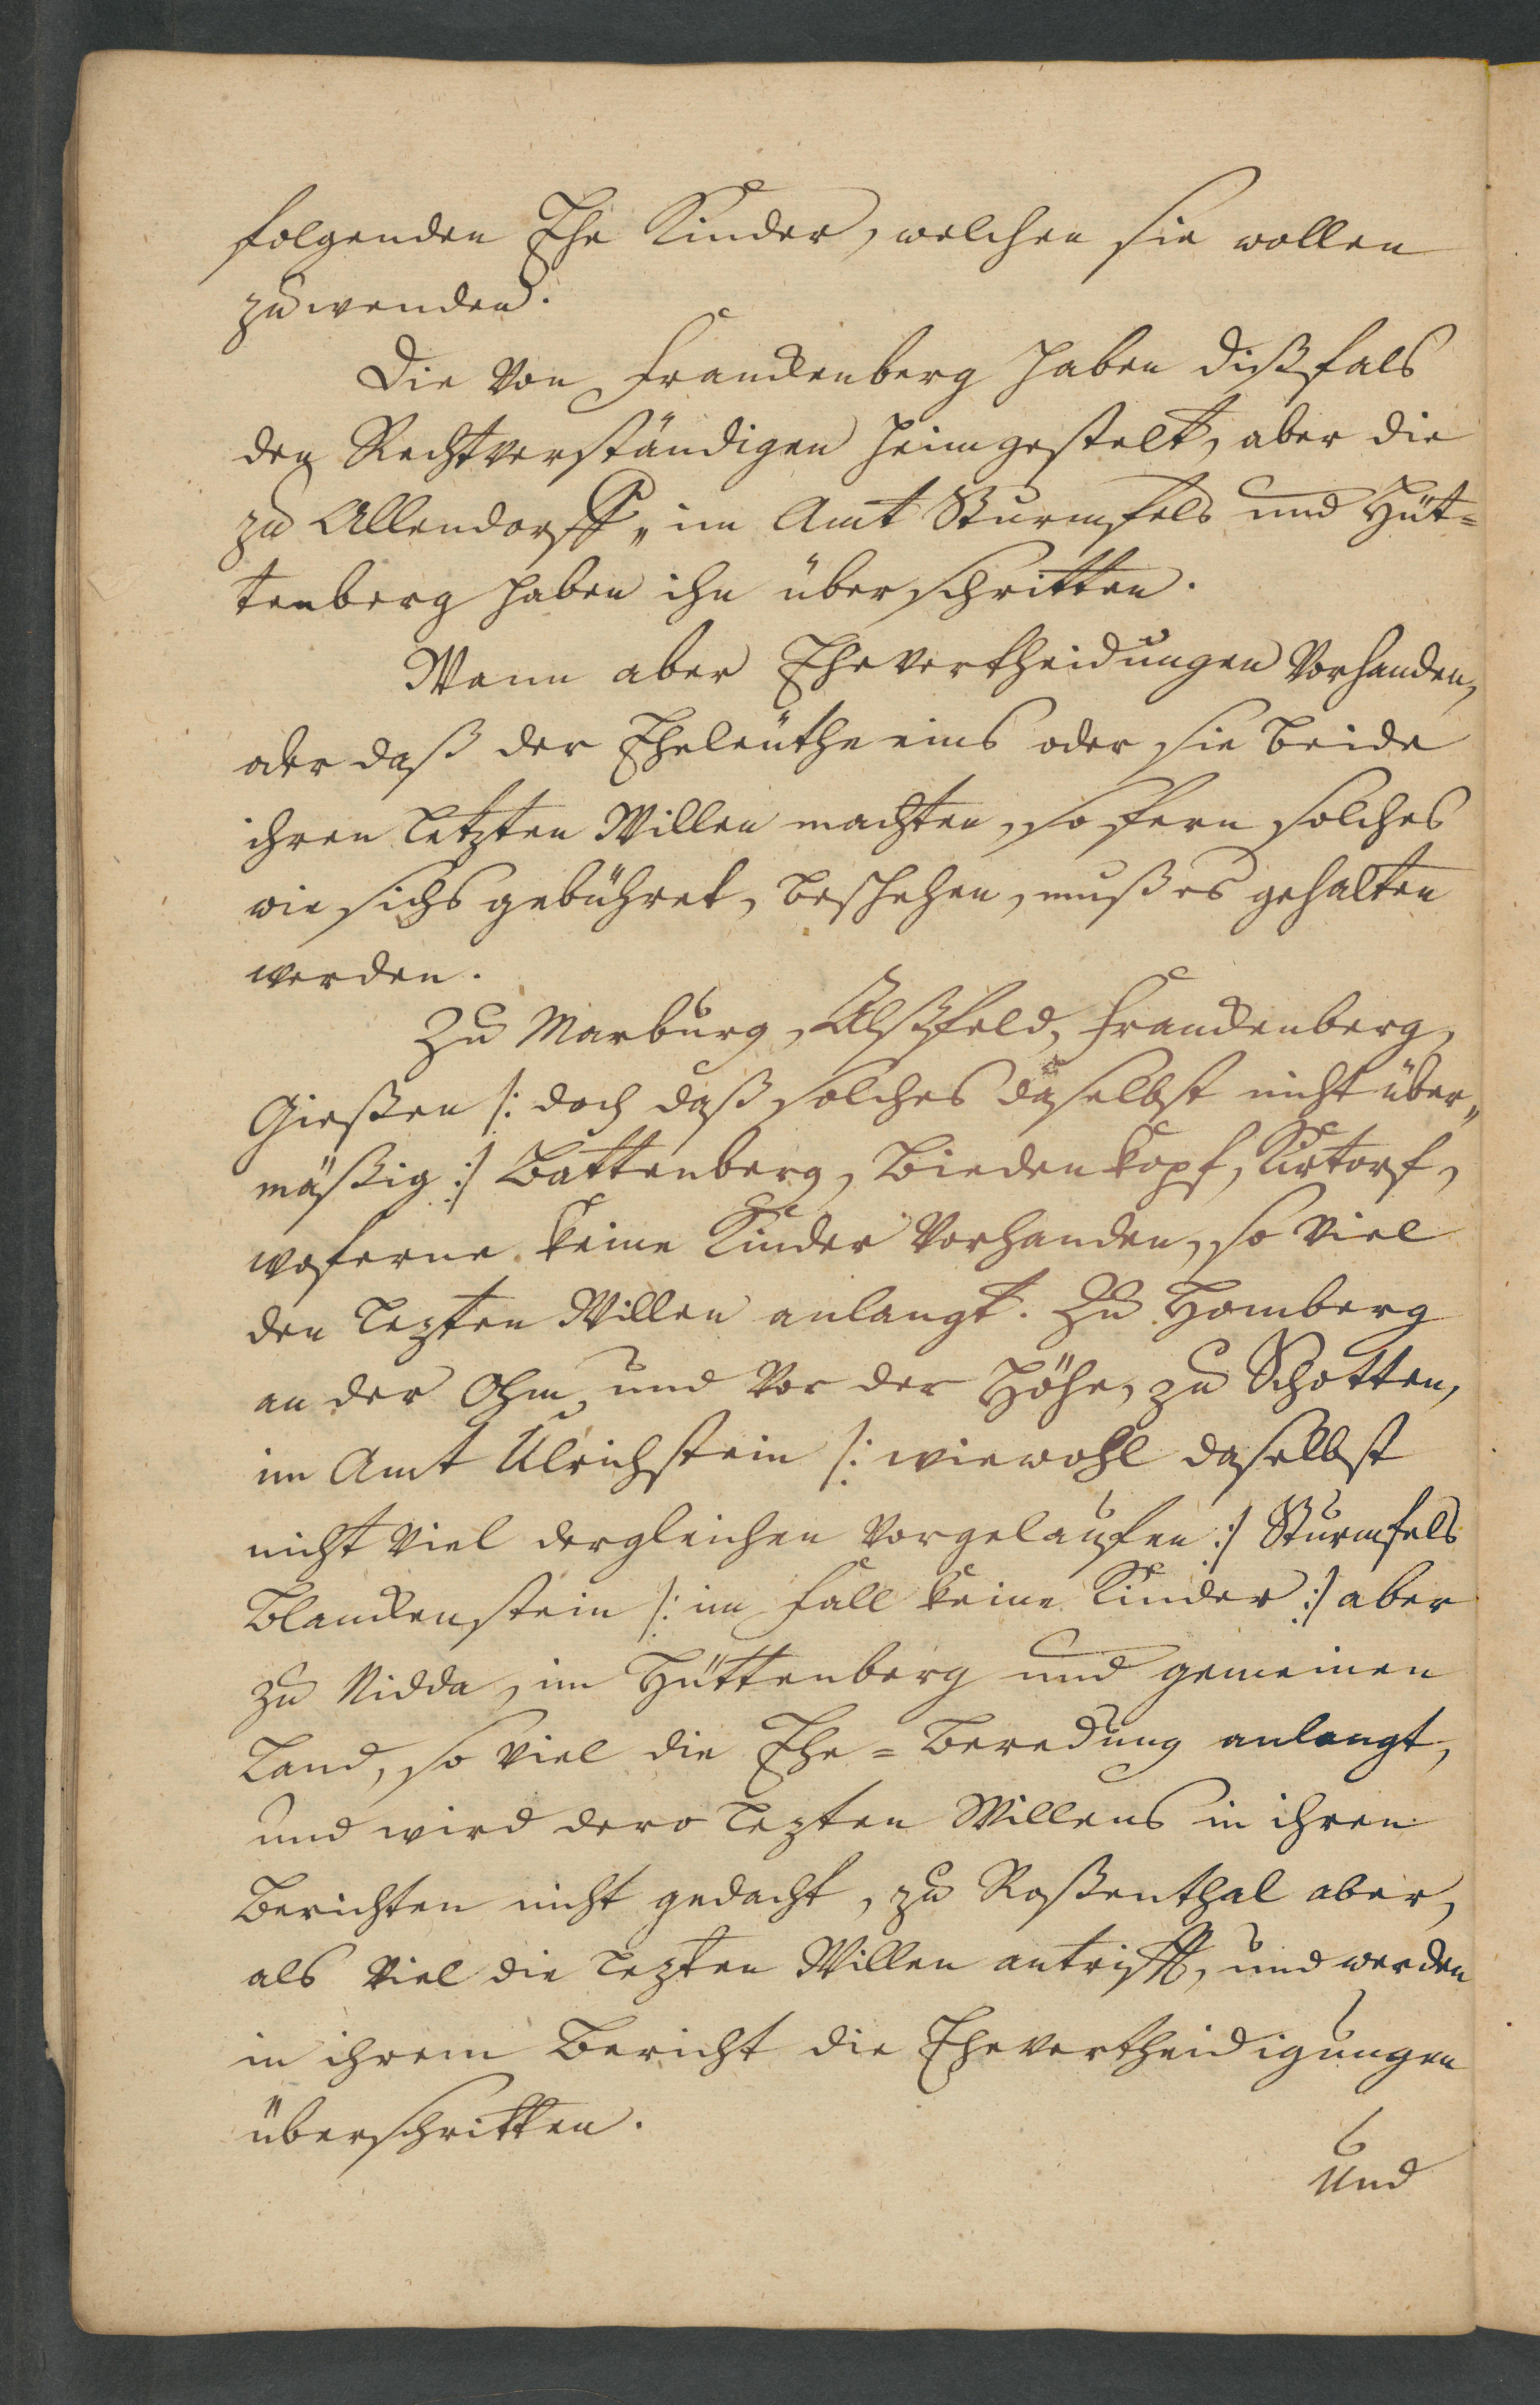 folgenden Ehe Kinder, welchen sie wollen
zuwenden.
Die von Franckenberg haben dißfals
den Rechtverständigen heimgestelt, aber die
zu Allendorff, im Amt Sturmfels und Hüt=
tenberg haben ihn überschritten.
Wann aber Ehevertheidungen vorhanden,
oder daß der Eheleuthe eins oder sie beide
ihren letzten Willen machten, so fern solches
wie sichs gebühret, beschehen, muß es gehalten
werden.
Zu Marburg, Alßfeld, Franckenberg,
Gießen /: doch daß solches daselbst nicht über„
mäßig :/ Battenberg, Biedenkopf, Kirtorf,
woferne keine Kinder vorhanden, so viel
den lezten Willen anlangt. Zu Homberg
an der Ohm und vor der Höhe, zu Schotten,
im Amt Ulrichstein /: wiewohl daselbst
nicht viel dergleichen vorgelauffen :/ Sturmfels
Blanckenstein /: im fall keine Kinder :/ aber
zu Nidda, im Hüttenberg und gemeinen
Land, so viel die Ehe=Beredung anlangt,
und wird dero lezten Willens in ihren
Berichten nicht gedacht, zu Roßenthal aber,
als viel die lezten Willen antrifft, und werden
in ihrem Bericht die Ehevertheidigungen
überschritten.
Und